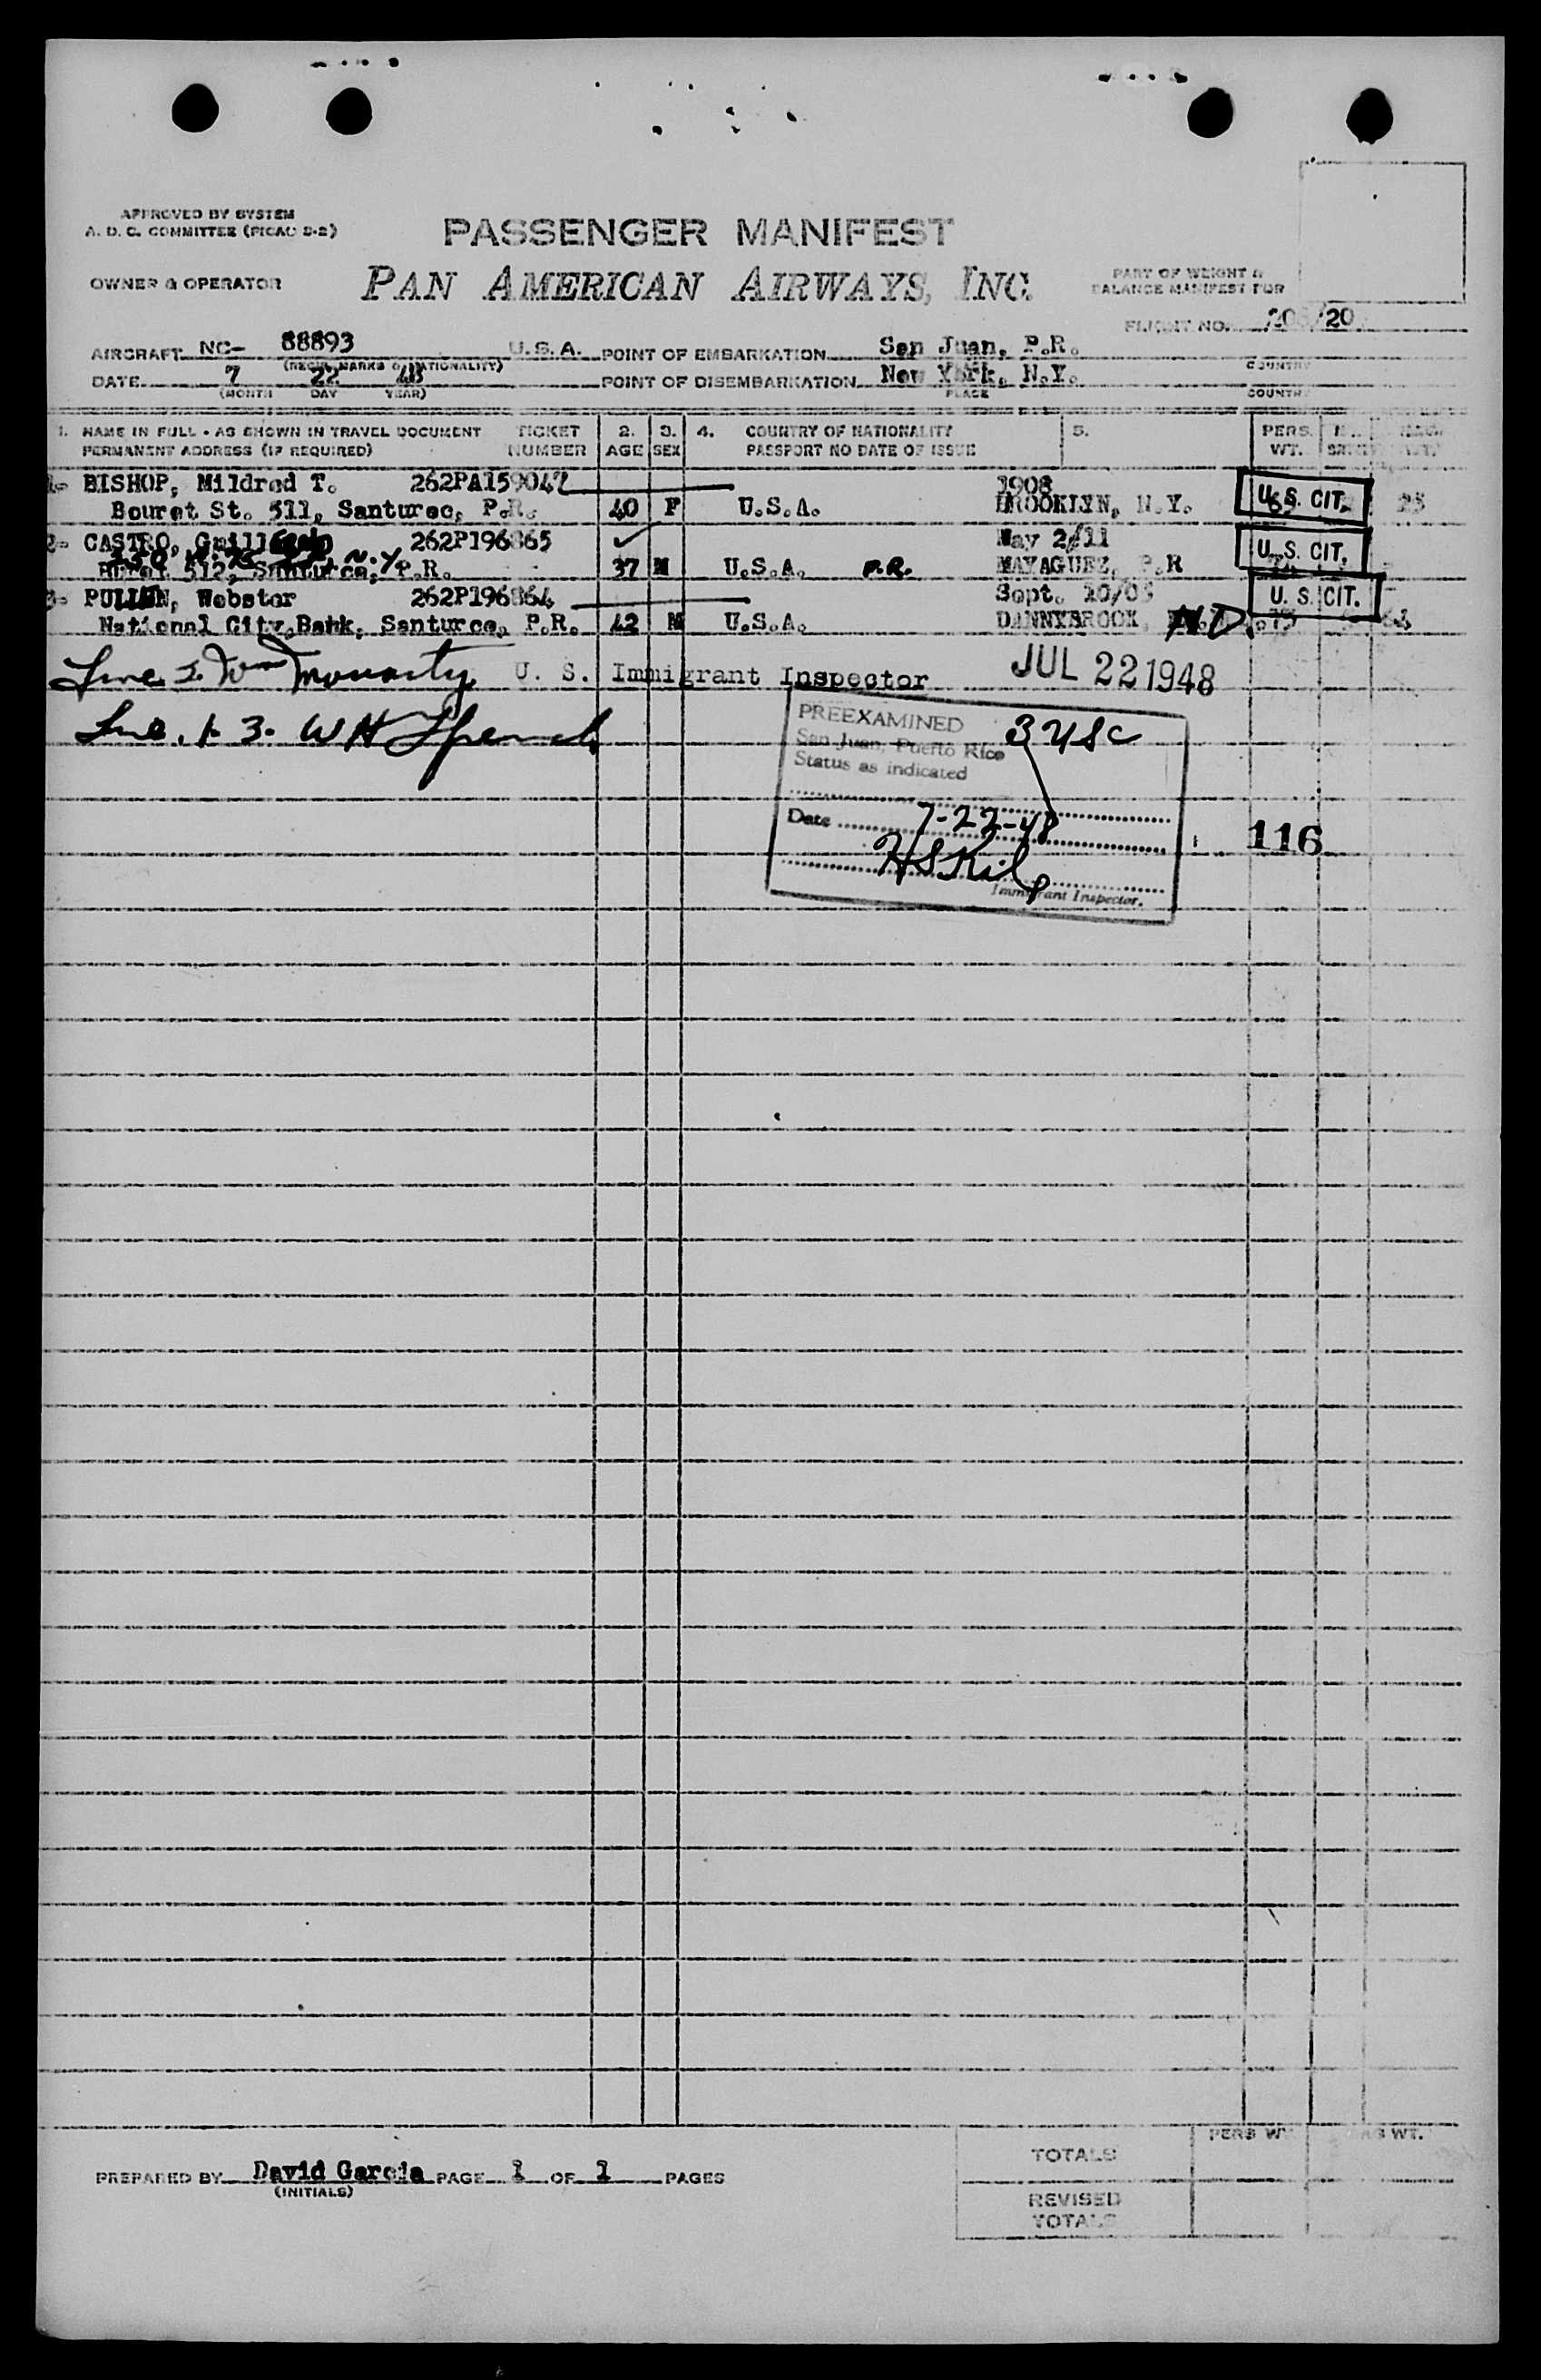 APPROVED BY SYSTEM
A. D. C. COMMITTEE (PICAO 2-2)
PASSENGER MANIFEST
OWNER & OPERATOR
PAN AMERICAN AIRWAYS, INC.
PART OF WEIGHT &
BALANCE MANIFEST FOR
FLIGHT NO. /20
AIRCRAFT NC- 88893 U.S.A. POINT OF EMBARKATION San Juan, P.R.
(REGIS. MARKS & NATIONALITY) COUNTRY
DATE 7 22 48 POINT OF DISEMBARKATION New York, N.Y.
(MONTH DAY YEAR) PLACE COUNTRY
1. NAME IN FULL - AS SHOWN IN TRAVEL DOCUMENT TICKET 2. 3. 4. COUNTRY OF NATIONALITY 5. PERS.
PERMANENT ADDRESS (IF REQUIRED) NUMBER AGE SEX PASSPORT NO DATE OF ISSUE WT.
1- BISHOP, Mildred T. 262PA159047 1908
Bouret St. 511, Santurce, P.R. 40 F U.S.A. BROOKLYN, N.Y. U.S. CIT. 25
2- CASTRO, 262P196865 May 2/11
512, Santurce, P.R. N.Y. 37 M U.S.A. P.R. MAYAGUEZ, P.R U.S. CIT.
3- Webster 262P196864 Sept. 10/05
National City Bank, Santurce, P.R. 42 M U.S.A. DANNYBROOK, N.D. U. S. CIT.
Line 2. Wm Moriarty U. S. Immigrant Inspector JUL 22 1948
Line. 1-3. W H
PREEXAMINED 3 USC
San Juan, Puerto Rico
Status as indicated
Date 7-22-48
116
Immigrant Inspector.
PREPARED BY David Garcia PAGE 1 OF 1 PAGES
(INITIALS)
PERS WT
TOTALS
REVISED
TOTALS